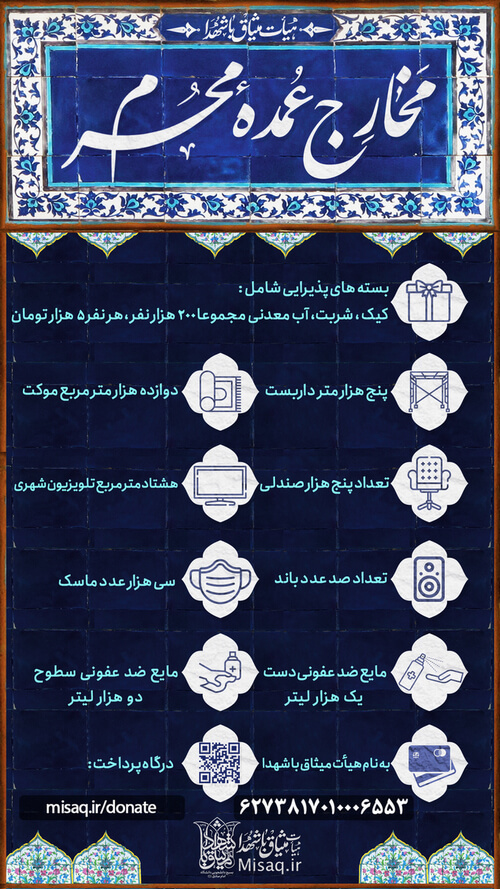 هیأت میثاق با شهدا
مخارج عمدهٔ محرم
بسته های پذیرایی شامل :
کیک ، شربت، آب معدنی مجموعا ۲۰۰ هزار نفر ، هر نفر ۵ هزار تومان
پنج هزار متر داربست
دوازده هزار متر مربع موکت
تعداد پنج هزار صندلی
هشتاد متر مربع تلویزیون شهری
تعداد صد عدد باند
سی هزار عدد ماسک
مایع ضد عفونی دست
یک هزار لیتر
مایع ضد عفونی سطوح
دو هزار لیتر
به نام هیأت میثاق با شهدا
درگاه پرداخت:
۶۲۷۳۸۱۷۰۱۰۰۰۶۵۵۳
misaq.ir/donate
هیأت میثاق با شهدا
Misaq.ir